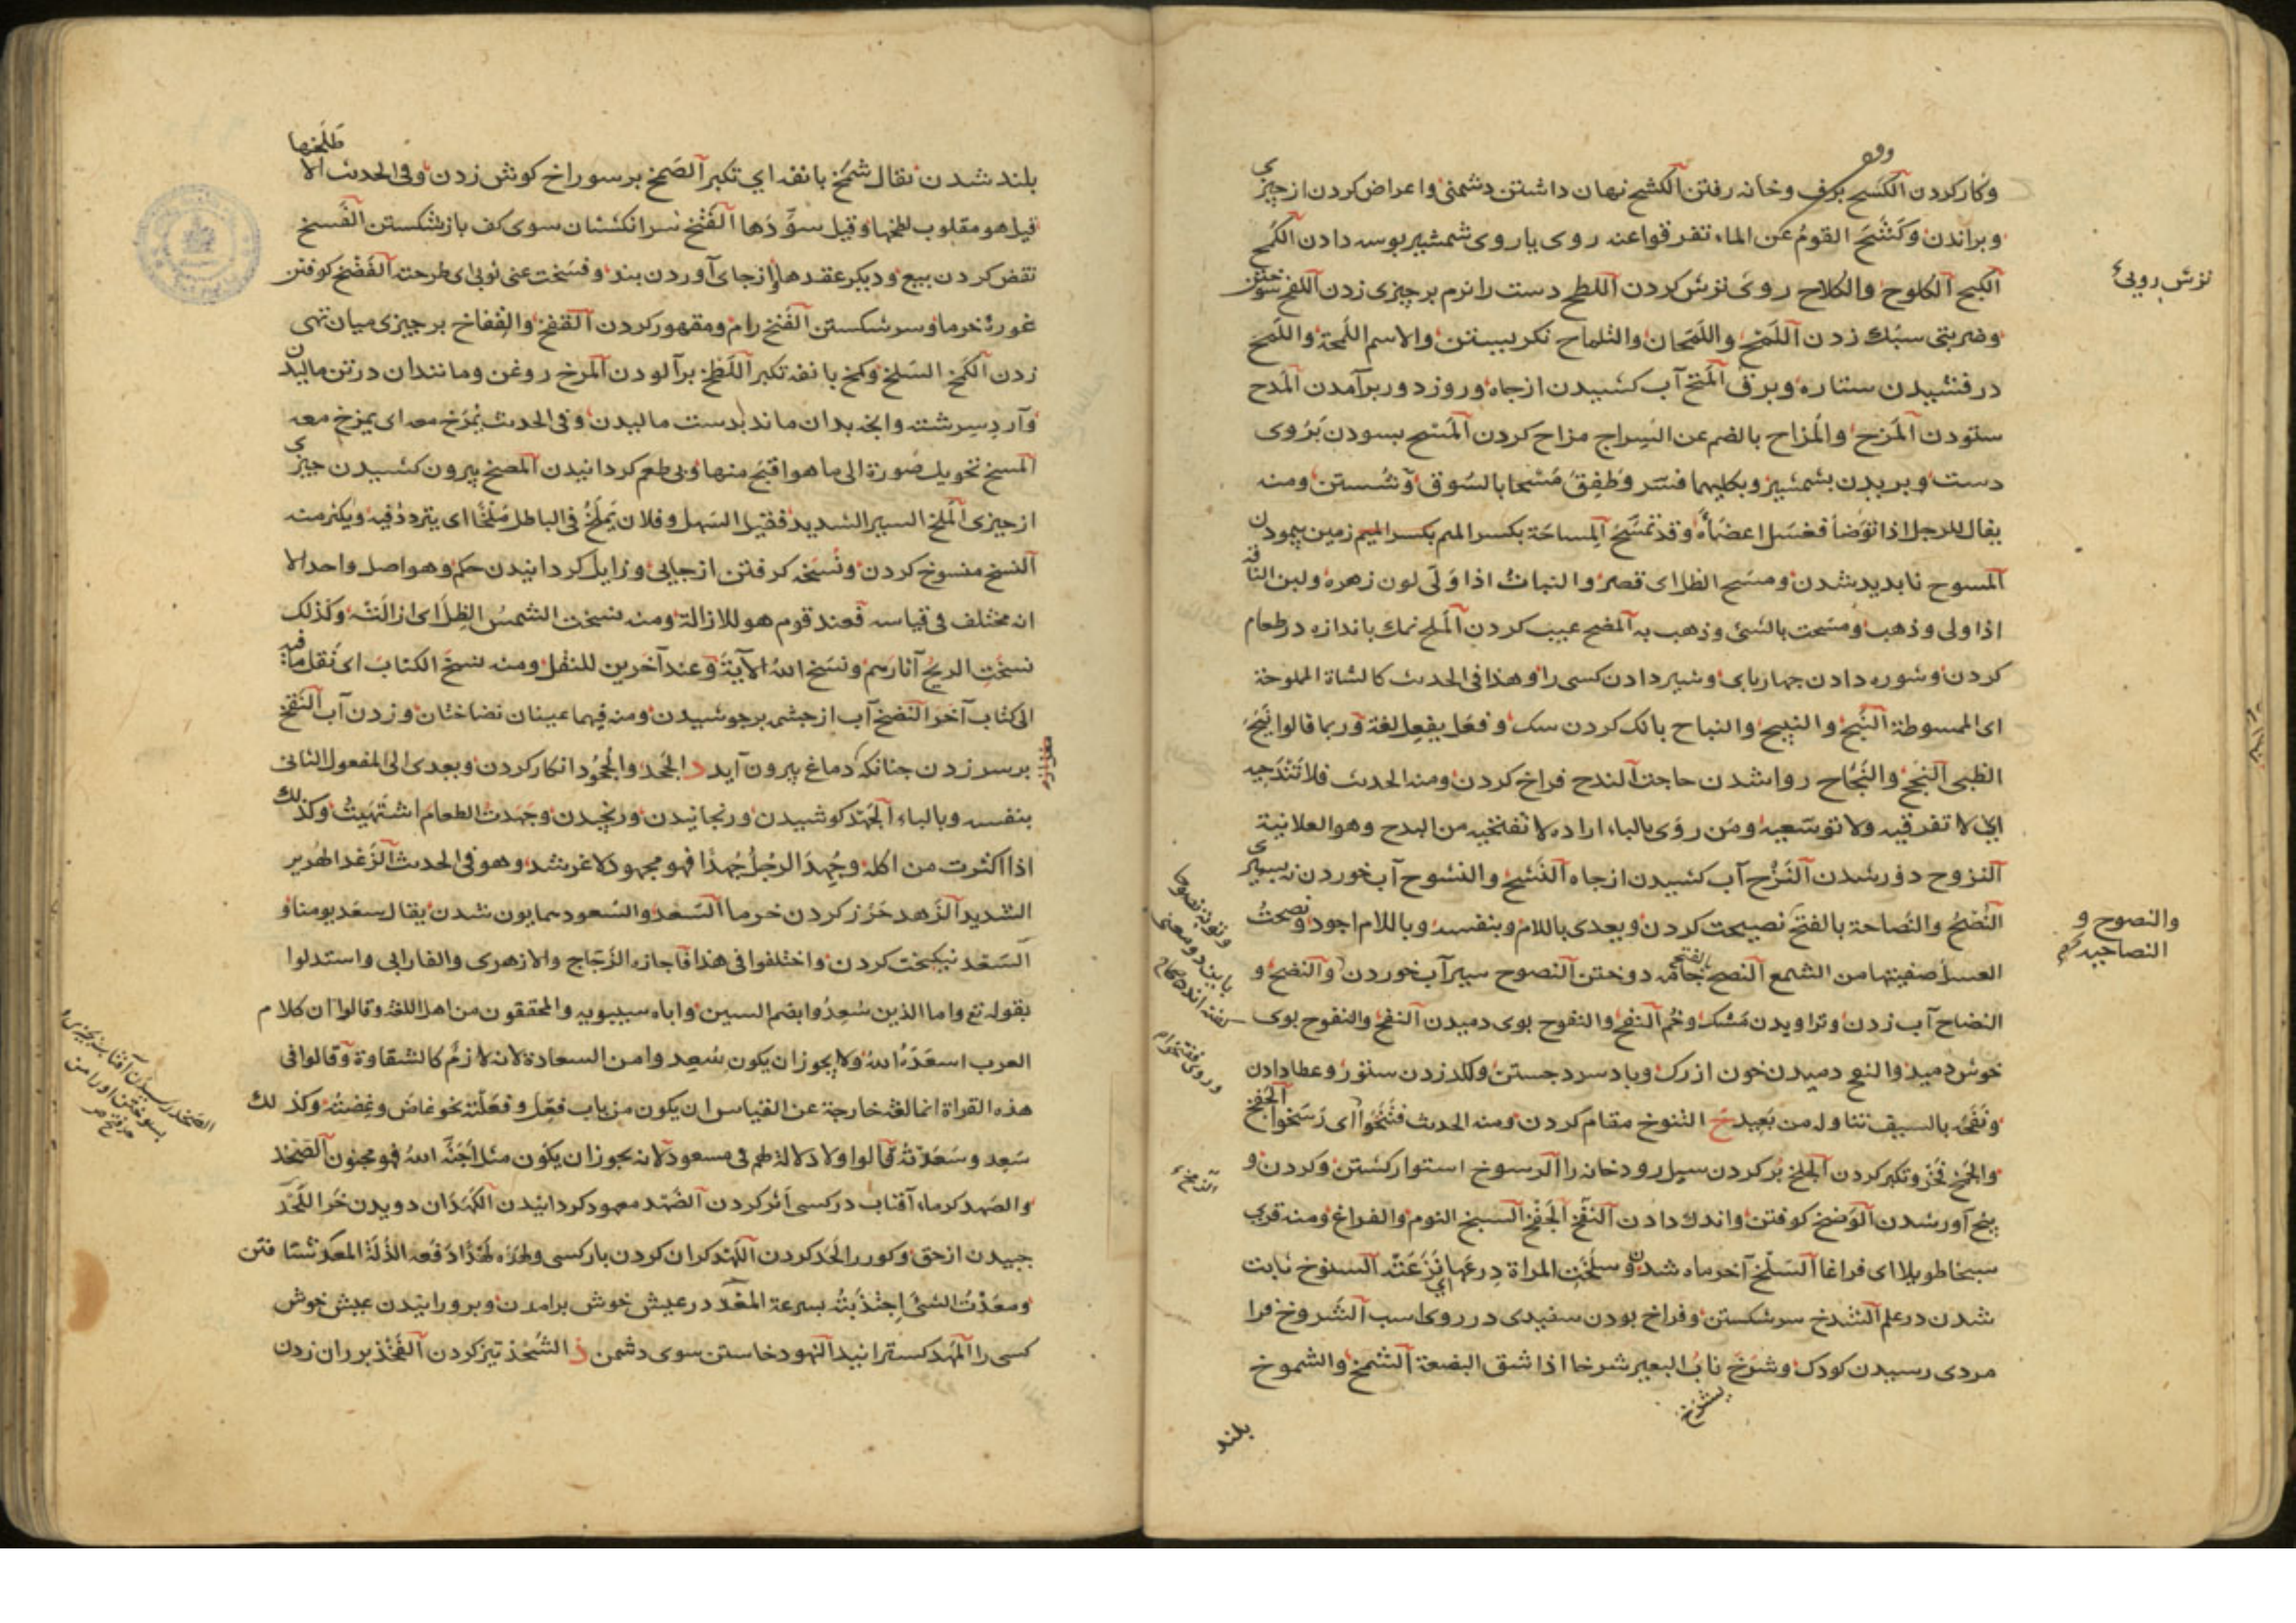 وكار كردن الكسح برف وخانه رفتن الكشح نهان داشتن دشمنی واعراض كردن از چیزی
وبراندن وكشح القوم عن الماء تفرقوا عنه روی یا روی شمشیر بوسه دادن الكمح
الكبح الكلوح والكلاح روی ترش كردن اللطح دست را نرم بر چیزی زدن اللفح سوختن
وضربتی سبك زدن اللمح واللمحان والتلماح نكریستن والاسم اللمحة واللمح
درفشیدن ستاره وبرق المتح آب كشیدن از چاه وروز دور برآمدن المدح
ستودن المزح والمزاح بالضم عن السراج مزاح كردن المسح بسودن بروی
دست وبریدن بشمشیر وبكلیهما فسر وطفق مسحا بالسوق وشستن ومنه
یقال للرجل اذا توضأ فغسل اعضاءه وقد تمسح المساحة بكسر المیم زمین پیمودن
المسوح نابدید شدن ومسح الظل ای قصر والنبات اذا ولی لون زهره ولبن الناقة
اذا ولی وذهب ومسحت بالشئ وذهب به المضح عیب كردن الملح نمك باندازه در طعام
كردن وشوره دادن چهارپای وشیر دادن كسی را وهذا فی الحدیث كالشاة المملوحة
ای المسموطة النبح والنبیح والنباح بانك كردن سك وفعل یفعل لغة وربما قالوا نبح
الظبی النجح والنجاح روا شدن حاجت الندح فراخ كردن ومنه الحدیث فلا تندحیه
ای لا تفرقیه ولا توسعیه ومن روی بالباء اراد لا تفتحیه من البدح وهو العلانیة
النزوح دور شدن النزح آب كشیدن از چاه النشح والنشوح آب خوردن نه سیری
النصح والنصاحة بالفتح نصیحت كردن ویعدی باللام وبنفسه وباللام اجود ونصحت
العسل صفیتها من الشمع النصح بالفتح جامه دوختن النصوح سیر آب خوردن والنضح و
النضاح آب زدن وتراویدن مشك وخم النفح والنفوح بوی دمیدن النفح والنفوح بوی
خوش دمید والنفح دمیدن خون از رك وباد سرد جستن ولكد زدن ستور وعطا دادن
ونفحه بالسیف تناوله من بعید خ التنوخ مقام كردن ومنه الحدیث فتنخوا ای رسخوا الجفخ
والجمخ فخر وتكبر كردن الجلخ پر كردن سیل رودخانه را الرسوخ استوار كشتن وكردن و
بیخ آور شدن الرضخ كوفتن واندك دادن النفخ الجفخ السبخ النوم والفراغ ومنه قری
سبخا طویلا ای فراغا السلخ آخر ماه شدن وسلخت المراة درعها ای نزعته السنوخ ثابت
شدن در علم الشدخ سر شكستن وفراخ بودن سفیدی در روی اسب الشروخ فرا
مردی رسیدن كودك وشرخ ناب البعیر شرخا اذا شق البضعة الشمخ والشموخ
یشرخ
بلند
ترش رویی
والنصوح و
النصاحیه
بلند شدن یقال شمخ بانفه ای تكبر الصمخ بر سوراخ كوش زدن وفی الحدیث الا
طلخها
قیل هو مقلوب لطخها وقیل سودها الفتخ سر انكشتان سوی كف باز شكستن الفسخ
نقض كردن بیع ودیكر عقدها از جای آوردن بند وفسخت عنی ثوبی ای طرحته الفضخ كوفتن
غوره خرما وسر شكستن الفنخ رام ومقهور كردن القفخ والقفاخ بر چیزی میان تهی
زدن الكمخ السلخ وكمخ بانفه تكبر اللطخ برآلودن المرخ روغن ومانند ان در تن مالیدن
وآرد سرشته وانچه بدان ماند بدست مالیدن وفی الحدیث یمرخ معه ای یمزح معه
المسخ تحویل صورة الی ما هو اقبح منها وبی طعم كردانیدن المصخ بیرون كشیدن چیزی
از چیزی الملخ السیر الشدید فقیل السهل وفلان یملخ فی الباطل ملخا ای یتردد فیه ویكثر منه
النسخ منسوخ كردن ونسخه كرفتن از جایی وزایل كردانیدن حكم وهو اصل واحد الا
انه مختلف فی قیاسه فعند قوم هو للازالة ومنه نسخت الشمس الظل ای ازالته وكذلك
نسخت الریح آثارهم ونسخ الله الآیة وعند آخرین للنقل ومنه نسخ الكتاب ای نقل ما فیه
الی كتاب آخر النضخ آب از چشمه بر جوشیدن ومنه فیهما عینان نضاختان وزدن آب النقخ
بر سر زدن چنانكه دماغ بیرون آید د الجحد والجحود انكار كردن ویعدی الی المفعول الثانی
بنفسه وبالباء الجهد كوشیدن ورنجانیدن ورنجیدن وجهدت الطعام اشتهیت وكذلك
اذا اكثرت من اكله وجهد الرجل جهدا فهو مجهود لاغر شد وهو فی الحدیث الزغد الهدیر
الشدید الزهد حزر كردن خرما السعد والسعود همایون شدن یقال سعد یومنا و
السعد نیكبخت كردن واختلفوا فی هذا فاجازه الزجاج والازهری والفارابی واستدلوا
بقوله تع واما الذین سعدوا بضم السین واباه سیبویه والمحققون من اهل اللغة وقالوا ان كلام
العرب اسعده الله ولا یجوز ان یكون سعد وا من السعادة لانه لازم كالشقاوة وقالوا فی
هذه القراة انها لغة خارجة عن القیاس او ان یكون من باب فعل وفعلته نحو غاض وغضته وكذلك
سعد وسعدته قالوا ولا دلالة لهم فی مسعود لانه یجوز ان یكون مثل اجنه الله فهو مجنون الصخد
والصهد كرماء آفتاب در كسی اثر كردن الضهد مقهور كردانیدن الكهدان دویدن خر اللحد
چبیدن از حق وكور را لحد كردن اللهد كران كردن بار كسی ولهده لهدا دفعه الذلة المعد شتافتن
ومعدت الشئ اجتذبته بسرعة المغد در عیش خوش برآمدن وپرورانیدن عیش خوش
كسی را المهد كسترانید النهود خاستن سوی دشمن ذ الشحذ تیز كردن الفخذ بر ران زدن